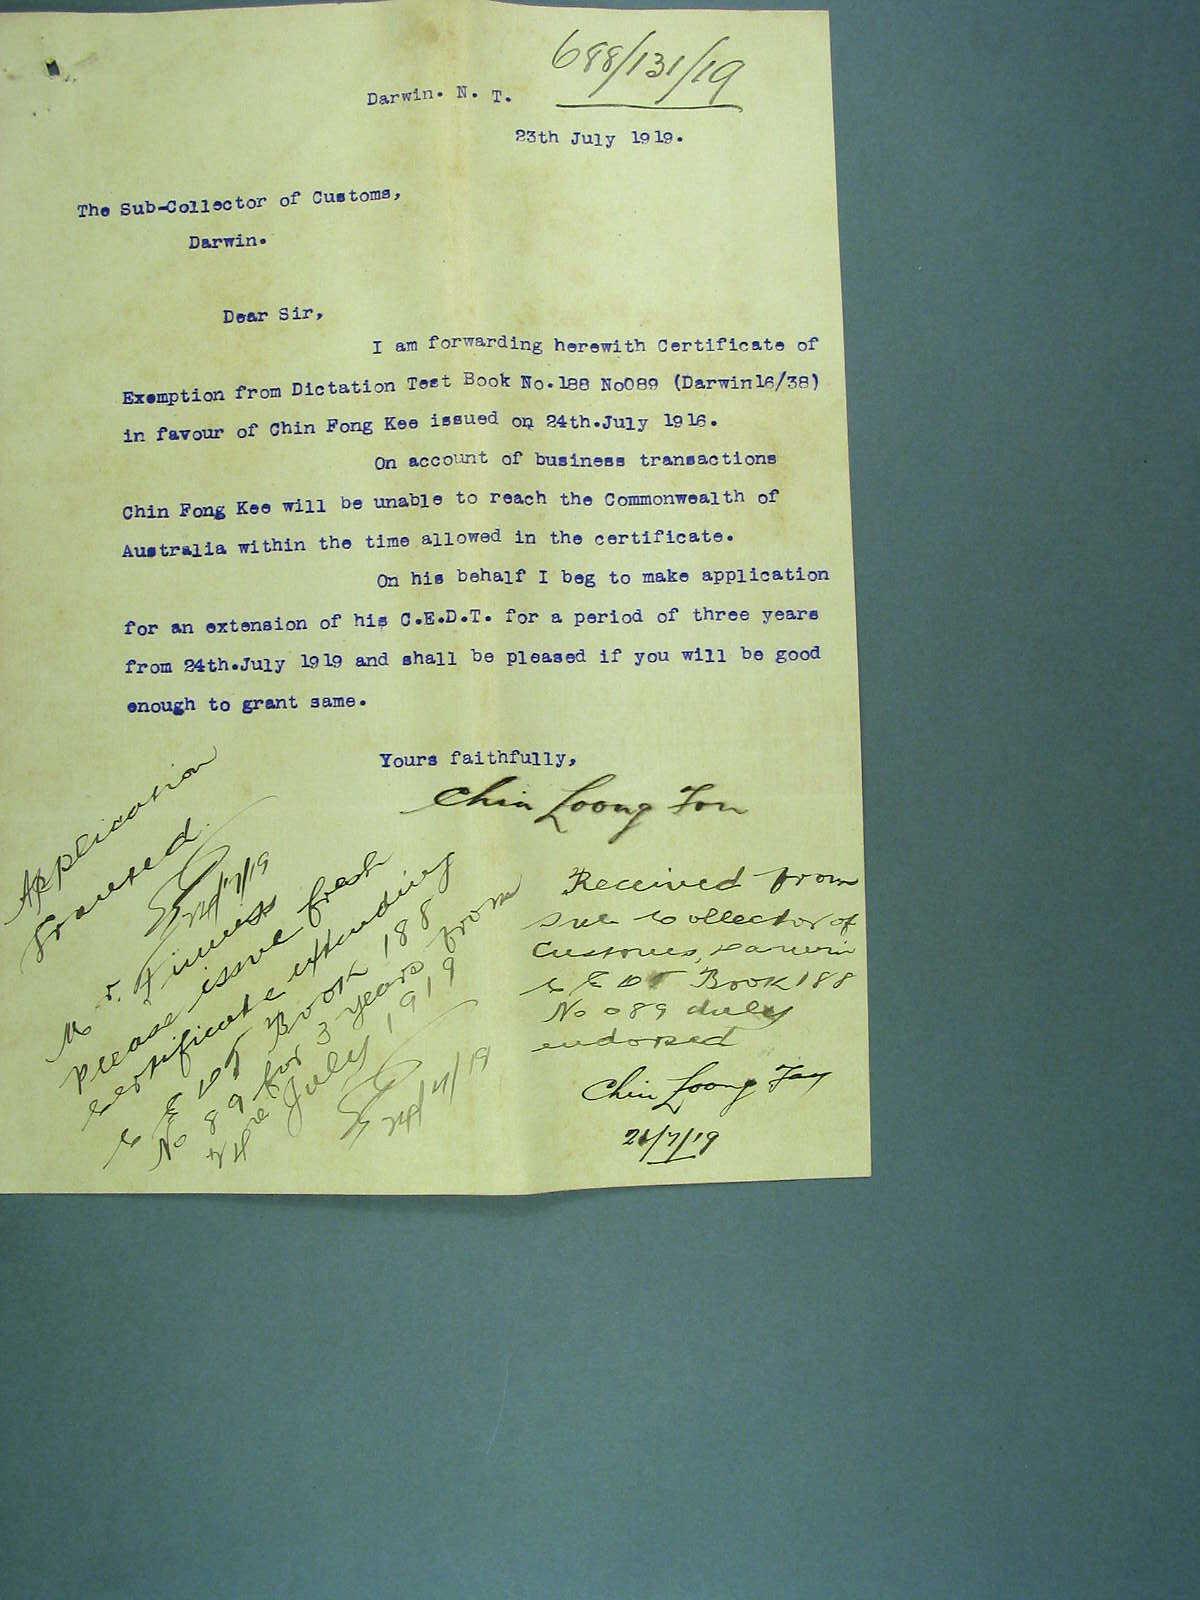 688/131/19
Darwin. N. T.
23th July 1919.
The Sub-Collector of Customs,
Darwin.
Dear Sir,
I am forwarding herewith Certificate of
Exemption from Dictation Test Book No.188 No089 (Darwin16/38)
in favour of Chin Fong Kee issued on 24th.July 1916.
On account of business transactions
Chin Fong Kee will be unable to reach the Commonwealth of
Australia within the time allowed in the certificate.
On his behalf I beg to make application
for an extension of his C.E.D.T. for a period of three years
from 24th.July 1919 and shall be pleased if you will be good
enough to grant same.
Yours faithfully,
Chin Loong Fon
Application
Granted.
24/7/19
Mr.
Please issue fresh
Certificate extending
C E D T Book 188
No 89 for 3 years from
24th July 1919
24/7/19
Received from
Sub Collector of
Customs, Darwin
C E D T Book 188
No 089 duly
endorsed
Chin Loong
/7/19